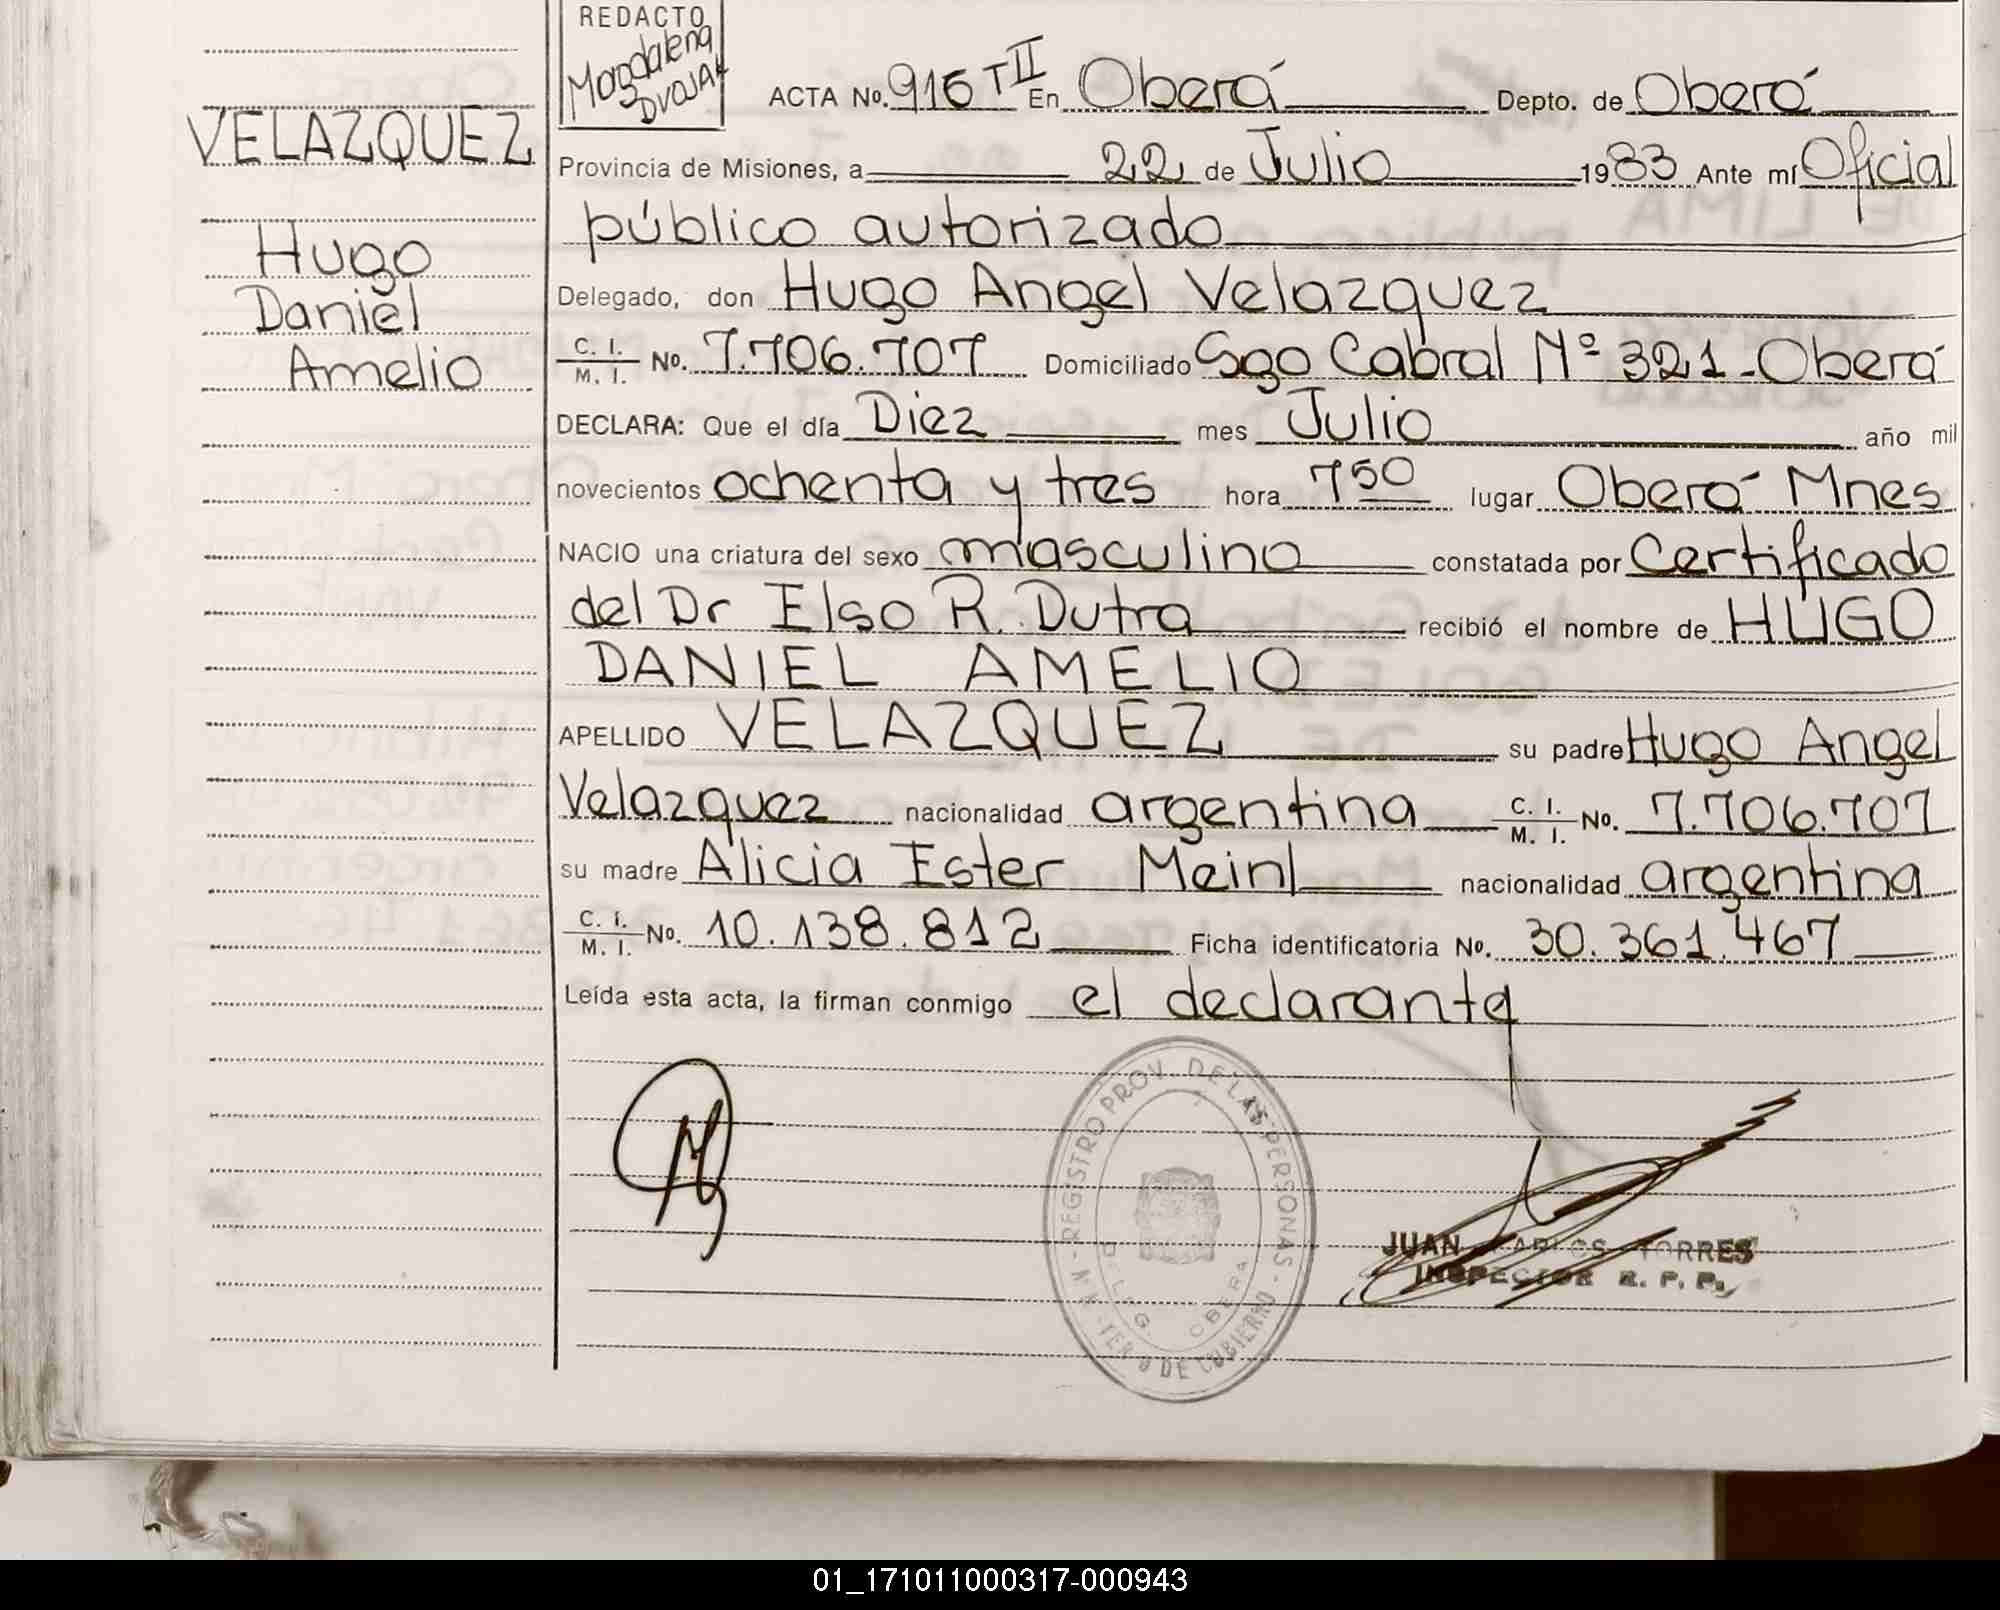 REDACTO
Magdalena
DVOJAK
VELAZQUEZ
Hugo
Daniel
Amelio
ACTA No. 916 T II En Oberá Depto. de Oberá
Provincia de Misiones, a 22 de Julio 1983 Ante mí Oficial
público autorizado
Delegado, don Hugo Angel Velazquez
C. I. / M. I. No. 7.706.707 Domiciliado Sgo Cabral Nº 321 - Oberá
DECLARA: Que el día Diez mes Julio año mil
novecientos ochenta y tres hora 7 50 lugar Oberá Mnes
NACIO una criatura del sexo masculino constatada por Certificado
del Dr Elso R. Dutra recibió el nombre de HUGO
DANIEL AMELIO
APELLIDO VELAZQUEZ su padre Hugo Angel
Velazquez nacionalidad argentina C. I. / M. I. No. 7.706.707
su madre Alicia Ester Meinl nacionalidad argentina
C. I. / M. I. No. 10.138.812 Ficha identificatoria No. 30.361.467
Leída esta acta, la firman conmigo el declarante
REGISTRO PROV. DE LAS PERSONAS
DE GOBIERNO
OBERA
JUAN CARLOS TORRES
INSPECTOR R. P. P.
01_171011000317-000943